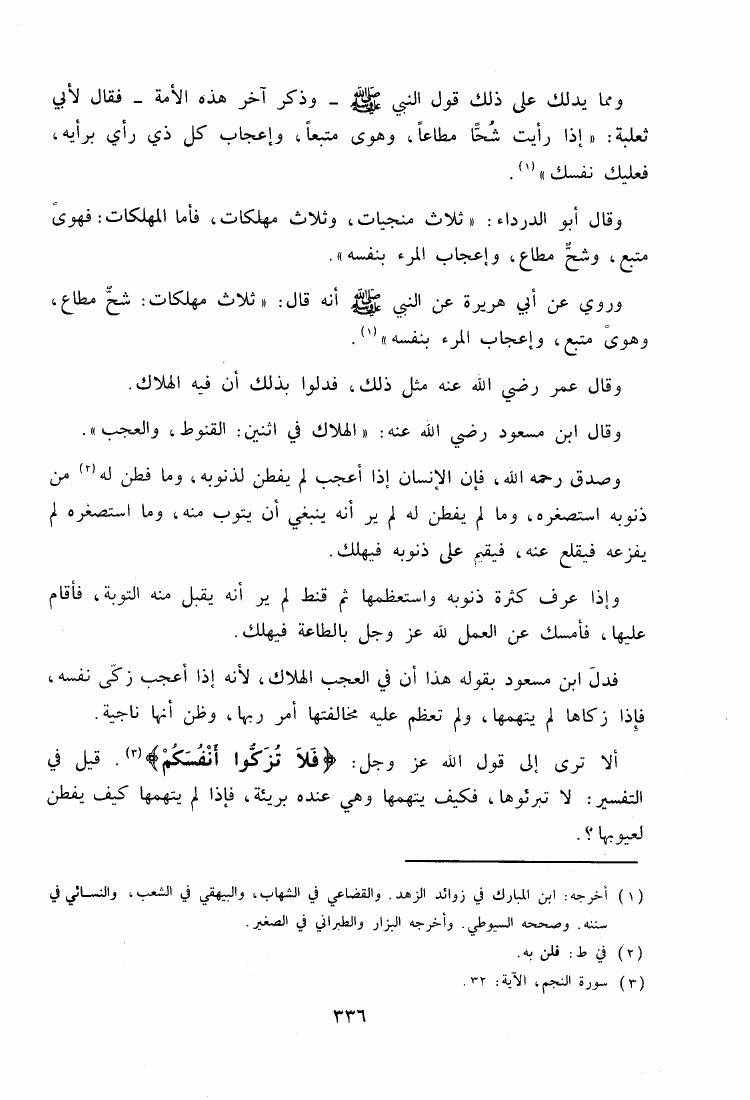 ومما يدلك على ذلك قول النبي ﷺ ـ وذكر آخر هذه الأمة ـ فقال لأبي
ثعلبة: «إذا رأيت شُحًّا مطاعاً، وهوى متبعاً، وإعجاب كل ذي رأي برأيه،
فعليك نفسك»(١).
وقال أبو الدرداء: «ثلاث منجيات، وثلاث مهلكات، فأما المهلكات: فهوىً
متبع، وشحٌّ مطاع، وإعجاب المرء بنفسه».
وروي عن أبي هريرة عن النبي ﷺ أنه قال: «ثلاث مهلكات: شحٌّ مطاع،
وهوىً متبع، وإعجاب المرء بنفسه»(١).
وقال عمر رضي الله عنه مثل ذلك، فدلوا بذلك أن فيه الهلاك.
وقال ابن مسعود رضي الله عنه: «الهلاك في اثنين: القنوط، والعجب».
وصدق رحمه الله، فإن الإنسان إذا أعجب لم يفطن لذنوبه، وما فطن له(٢) من
ذنوبه استصغره، وما لم يفطن له لم ير أنه ينبغي أن يتوب منه، وما استصغره لم
يفزعه فيقلع عنه، فيقيم على ذنوبه فيهلك.
وإذا عرف كثرة ذنوبه واستعظمها ثم قنط لم ير أنه يقبل منه التوبة، فأقام
عليها، فأمسك عن العمل لله عز وجل بالطاعة فيهلك.
فدلّ ابن مسعود بقوله هذا أن في العجب الهلاك، لأنه إذا أعجب زكّى نفسه،
فإذا زكاها لم يتهمها، ولم تعظم عليه مخالفتها أمر ربها، وظن أنها ناجية.
ألا ترى إلى قول الله عز وجل: ﴿فَلاَ تُزَكُّوا أَنْفُسَكُمْ﴾(٣). قيل في
التفسير: لا تبرئوها، فكيف يتهمها وهي عنده بريئة، فإذا لم يتهمها كيف يفطن
لعيوبها؟.
(١) أخرجه: ابن المبارك في زوائد الزهد. والقضاعي في الشهاب، والبيهقي في الشعب، والنسائي في
سننه. وصححه السيوطي. وأخرجه البزار والطبراني في الصغير.
(٢) في ط: فلن به.
(٣) سورة النجم، الآية: ٣٢.
٣٣٦